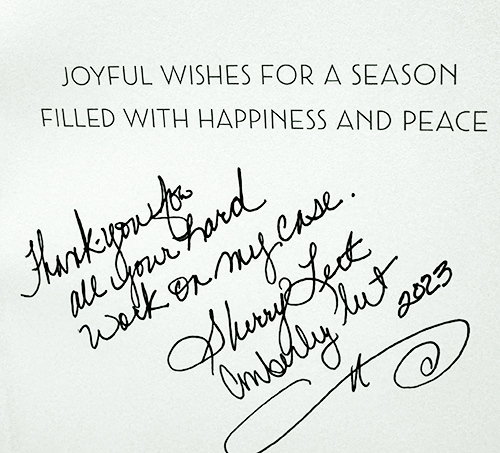 JOYFUL WISHES FOR A SEASON
FILLED WITH HAPPINESS AND PEACE
Thank you for
all your hard
work on my case.
Sherry
2023